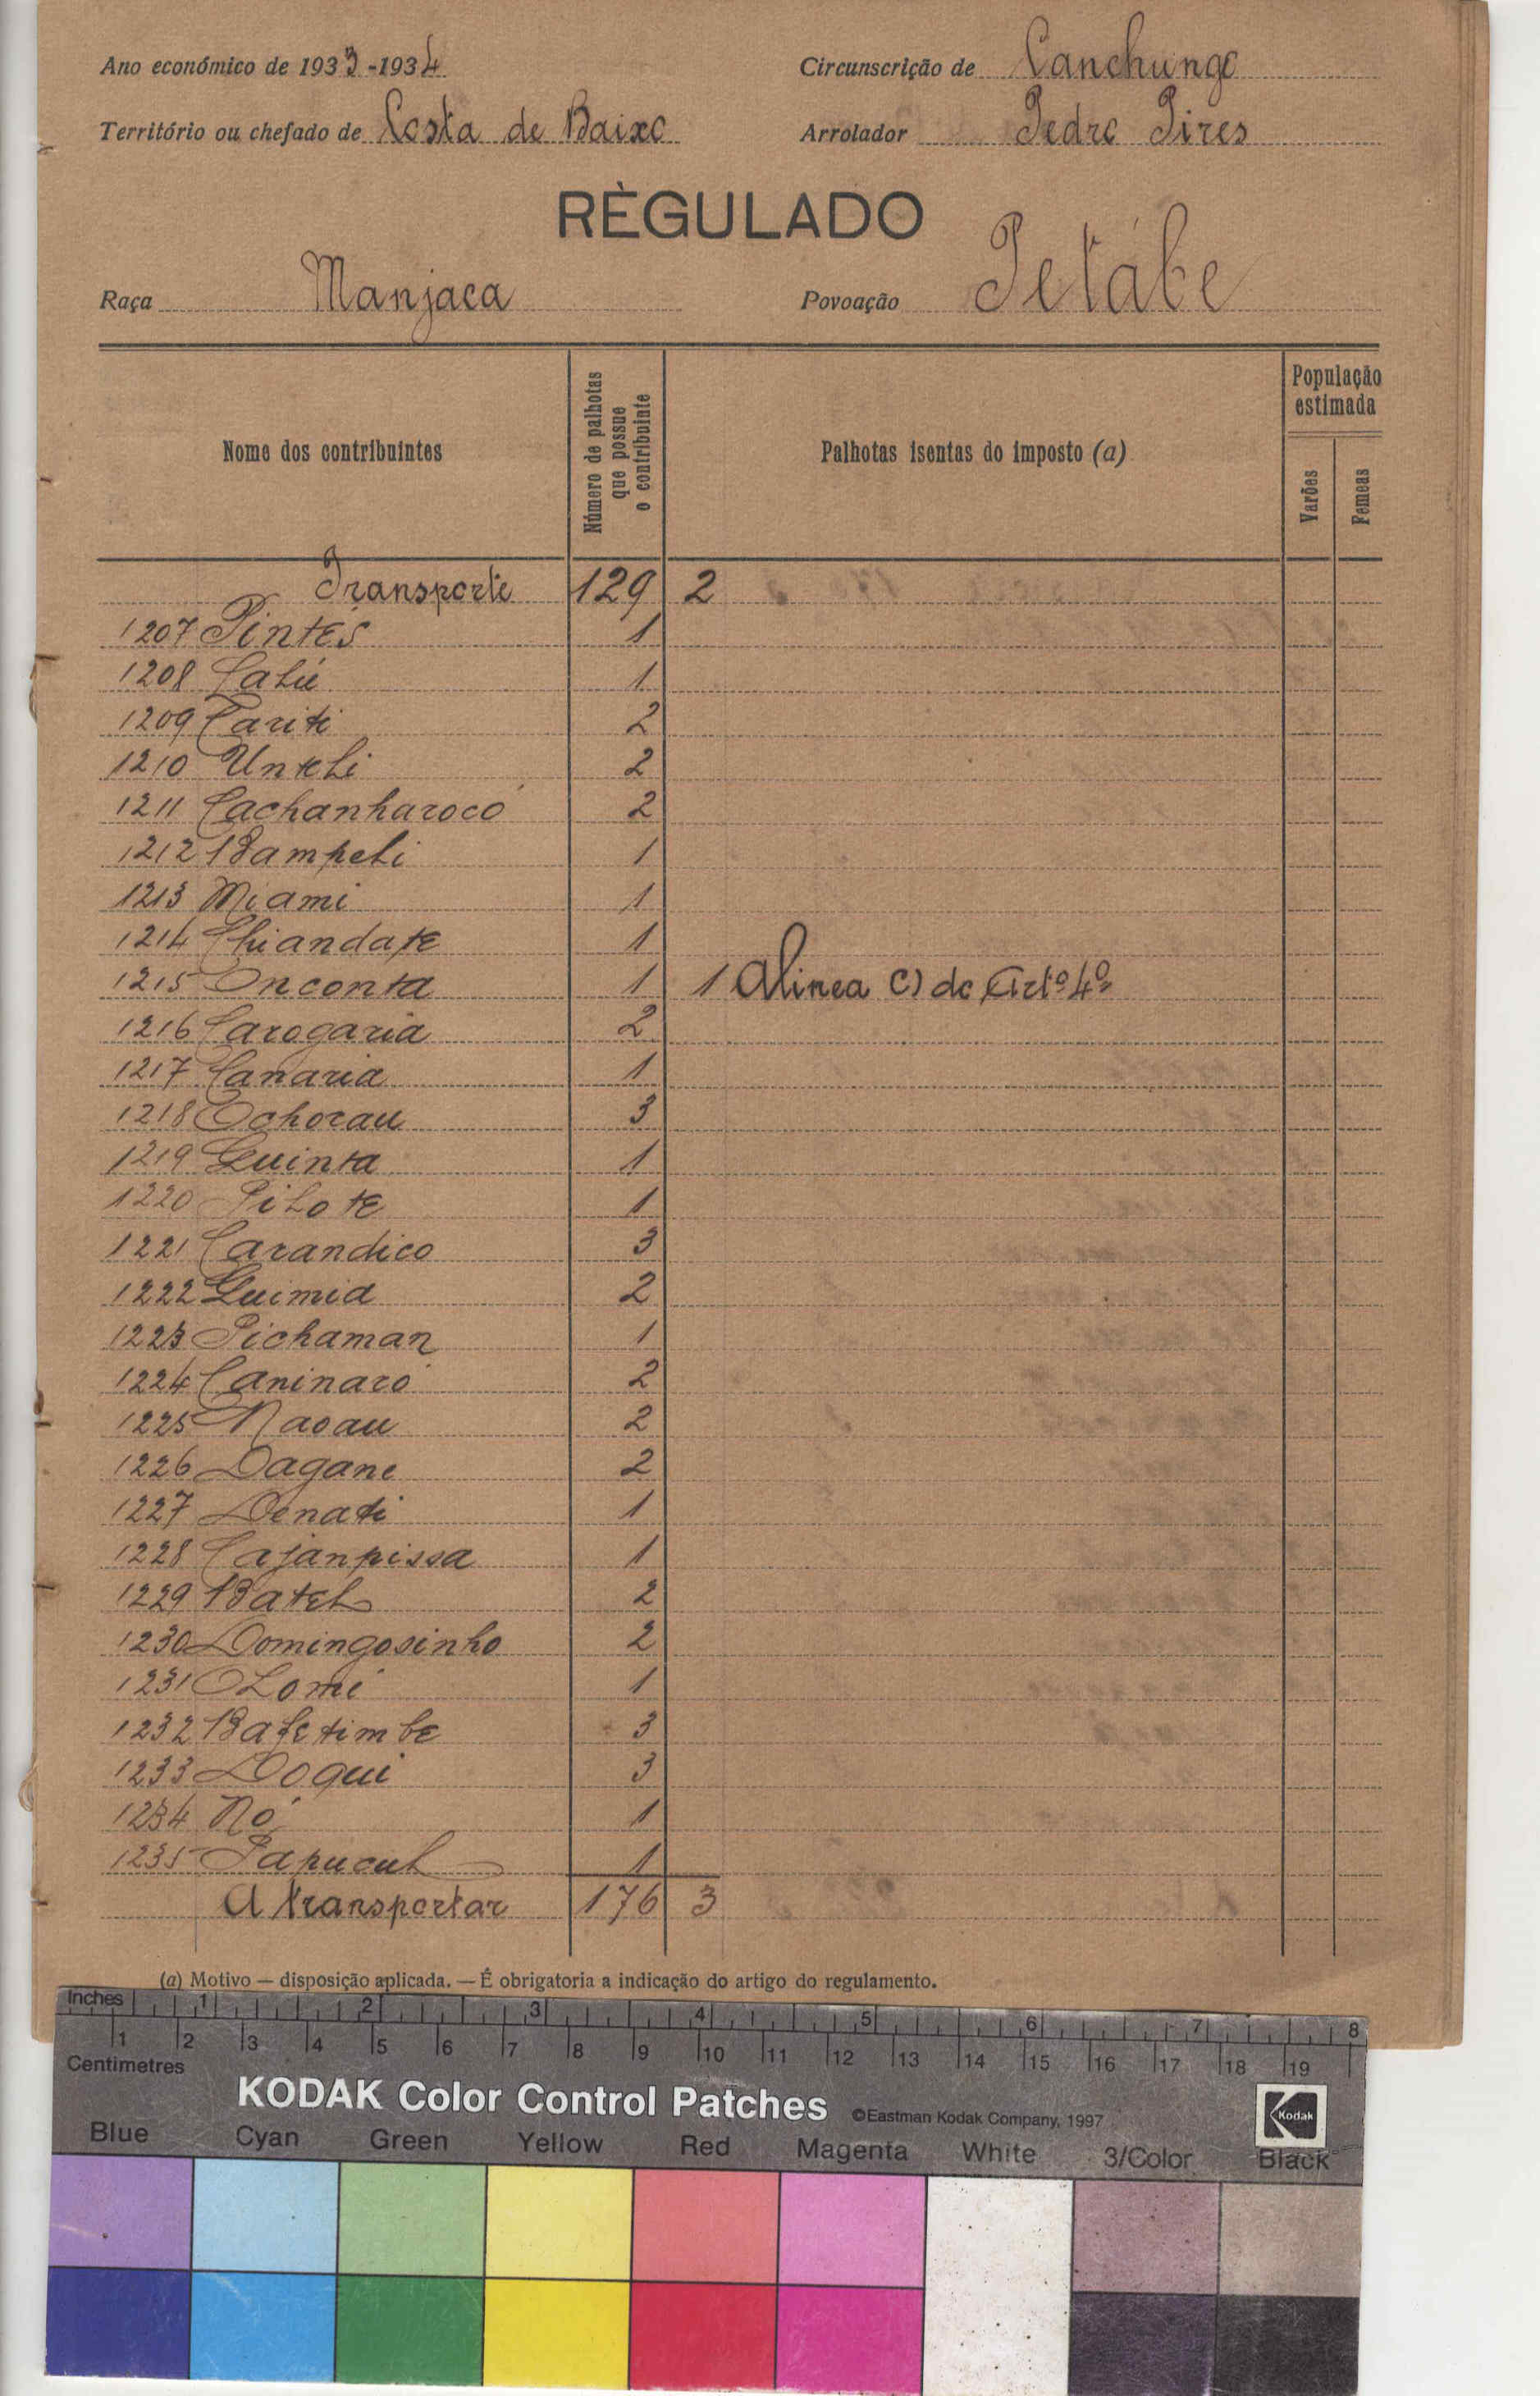 Ano económico de 1933-1934
Circunscrição de Canchungo
Território ou chefado de Costa de Baixo
Arrolador Pedro Pires
RÈGULADO
Raça Manjaca
Povoação Petábe
Nome dos contribuintes
Número de palhotas que possue o contribuinte
Palhotas isentas do imposto (a)
População estimada
Varões
Femeas
Transporte 129 2
1207 Pintes 1
1208 Calú 1
1209 Cariti 2
1210 Unteli 2
1211 Cachanharocó 2
1212 Bampeli 1
1213 Miami 1
1214 Chiandate 1
1215 Onconta 1 1 Alinea C) do Artº 4º
1216 Carogaria 2
1217 Canaria 1
1218 Ochorau 3
1219 Quinta 1
1220 Pilote 1
1221 Carandico 3
1222 Guimia 2
1223 Pichaman 1
1224 Caninaró 2
1225 Naoau 2
1226 Dagane 2
1227 Denati 1
1228 Cajanpissa 1
1229 Batel 2
1230 Domingosinho 2
1231 Lomi 1
1232 Bafetimbe 3
1233 Doqui 3
1234 Nó 1
1235 Papucul 1
A transportar 176 3
(a) Motivo — disposição aplicada. — É obrigatoria a indicação do artigo do regulamento.
Inches 1 2 3 4 5 6 7 8
1 2 3 4 5 6 7 8 9 10 11 12 13 14 15 16 17 18 19
Centimetres
KODAK Color Control Patches ©Eastman Kodak Company, 1997 Kodak
Blue Cyan Green Yellow Red Magenta White 3/Color Black